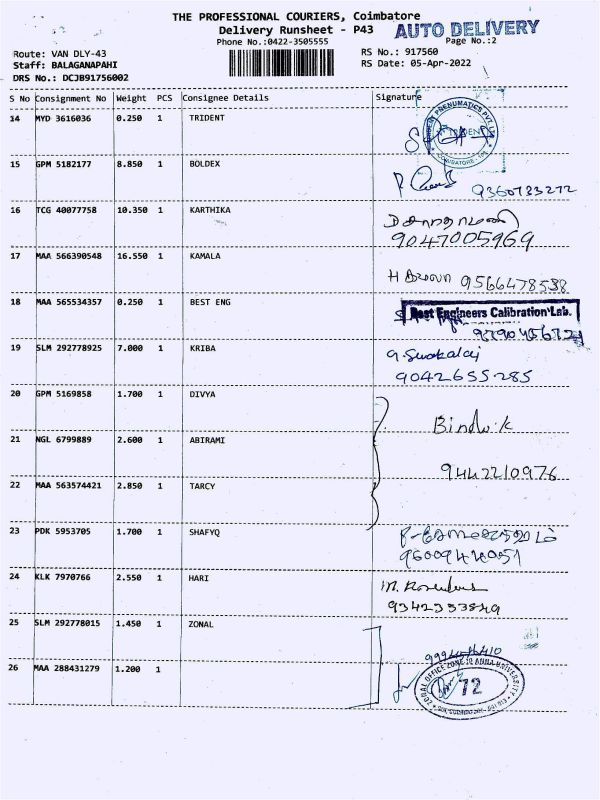 THE PROFESSIONAL COURIERS, Coimbatore
Delivery Runsheet - P43
AUTO DELIVERY
Phone No.:0422-3505555
Page No.:2
Route: VAN DLY-43
RS No.: 917560
Staff: BALAGANAPAHI
RS Date: 05-Apr-2022
DRS No.: DCJB91756002
S No Consignment No Weight PCS Consignee Details Signature
14 MYD 3616036 0.250 1 TRIDENT
TRIDENT PNEUMATICS PVT. LTD.
COIMBATORE
15 GPM 5182177 8.850 1 BOLDEX
9360733272
16 TCG 40077758 10.350 1 KARTHIKA
9047005969
17 MAA 566390548 16.550 1 KAMALA
9566478538
18 MAA 565534357 0.250 1 BEST ENG
Best Engineers Calibration Lab.
19 SLM 292778925 7.000 1 KRIBA
9042655285
20 GPM 5169858 1.700 1 DIVYA
21 NGL 6799889 2.600 1 ABIRAMI
9442210976
22 MAA 563574421 2.850 1 TARCY
23 PDK 5953705 1.700 1 SHAFYQ
24 KLK 7970766 2.550 1 HARI
25 SLM 292778015 1.450 1 ZONAL
26 MAA 288431279 1.200 1
ZONAL OFFICE ANNA UNIVERSITY
72